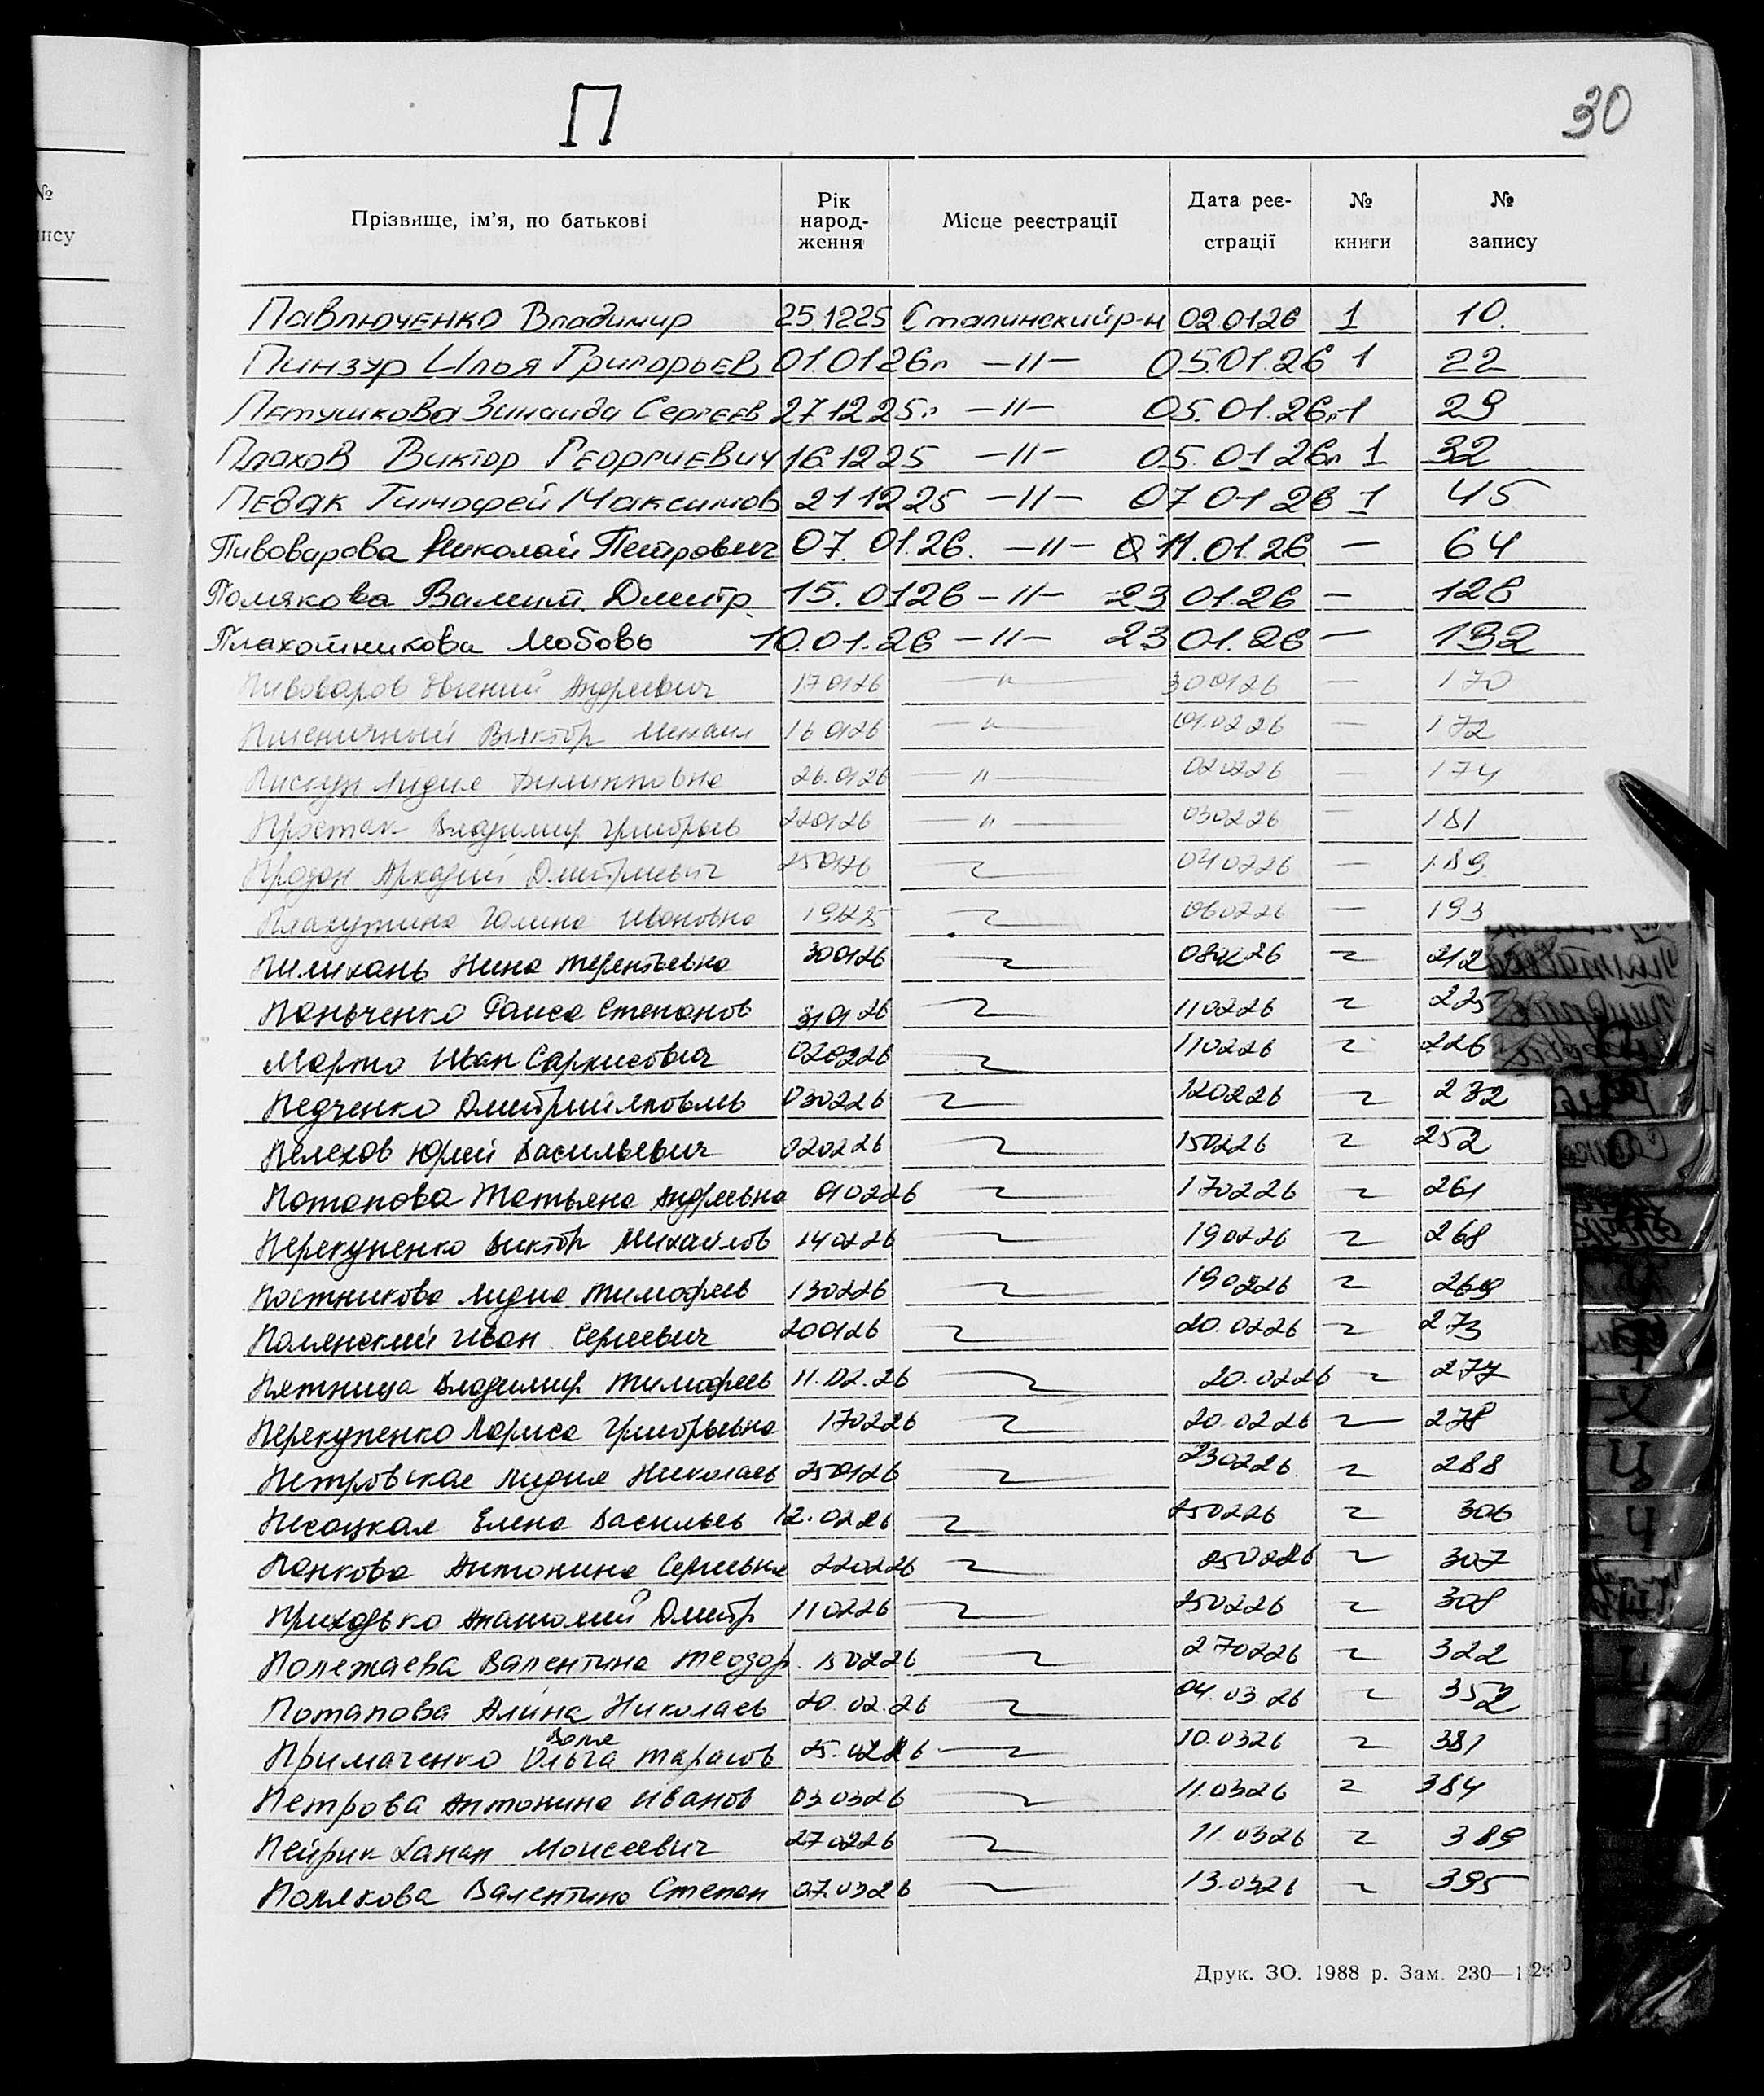 П
30
Прізвище, ім’я, по батькові Рік народження Місце реєстрації Дата реєстрації № книги № запису
Павлюченко Владимир 25.1225 Сталинский р-н 02.0126 1 10.
Пинзур Илья Григорьев 01.0126г —"— 05.01.26 1 22
Петушкова Зинаида Сергеев 27.12.25г —"— 05.01.26г 1 29
Плахов Виктор Георгиевич 16.1225 —"— 05.01.26г 1 32
Певак Тимофей Максимов 211225 —"— 07 01 26 1 45
Пивоварова Николай Петрович 07.01.26. —"— 11.01.26 — 64
Полякова Валент. Дмитр. 15.0126 —"— 23 01.26 — 126
Плахотникова Любовь 10.01.26 —"— 23 01.26 — 132
Пивоваров Евгений Андреевич 170126 —"— 300126 — 170
Пшеничный Виктор Михаил 160126 —"— 01.0226 — 172
Пискун Лидия Филипповна 26.0126 —"— 020226 — 174
Простак Владимир Григорьев 220126 —"— 030226 — 181
Продан Аркадий Дмитриевич 250126 040226 — 189
Плахутина Галина Ивановна 191225 060226 — 193
Пилихань Нина Терентьевна 300126 080226 212
Паньченко Раиса Степанов 310126 110226 225
Марто Иван Саркисович 020226 110226 226
Педченко Дмитрий Яковлев 030226 120226 232
Пелехов Юрий Васильевич 020226 150226 252
Потапова Татьяна Андреевна 010226 170226 261
Перекупенко Виктор Михайлов 140226 190226 268
Постникова Лидия Тимофеев 130226 190226 269
Полянский Иван Сергеевич 200126 20.0226 273
Пятница Владимир Тимофеев 11.02.26 20.0226 277
Перекупенко Лариса Григорьевна 170226 20.0226 278
Петровская Лидия Николаев 250126 230226 288
Песоцкая Елена Васильев 12.0226 250226 306
Панкова Антонина Сергеевна 220226 250226 307
Приходько Анатолий Дмитр 110226 250226 308
Полежаева Валентина Теодор. 150226 270226 322
Потапова Алина Николаев 20.02.26 04.03.26 352
Примаченко Ольга Тарасов 25.0226 10.0326 381
Петрова Антонина Иванов 03.0326 11.0326 384
Пейрик Ханан Моисеевич 270226 11.0326 389
Полякова Валентина Степан 07.0326 13.0326 395
Друк. ЗО. 1988 р. Зам. 230—1
№
Х
Ц
Ч